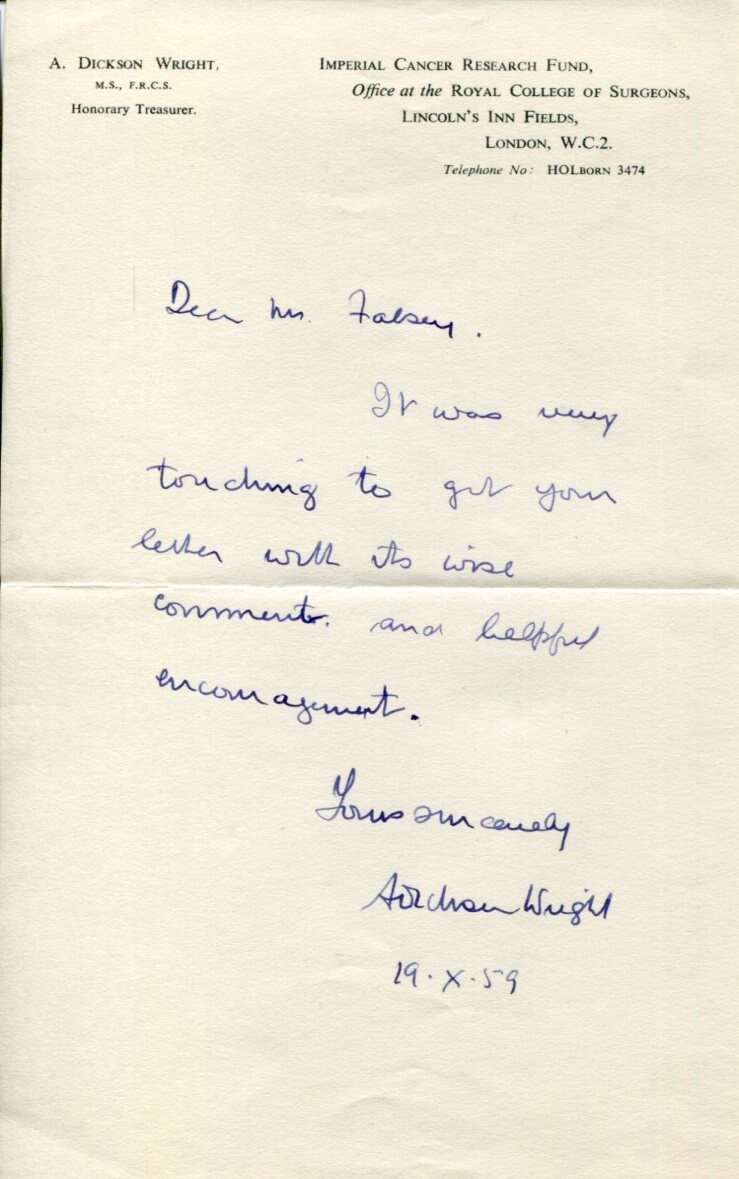 A. DICKSON WRIGHT,
M.S., F.R.C.S.
Honorary Treasurer.
IMPERIAL CANCER RESEARCH FUND,
Office at the ROYAL COLLEGE OF SURGEONS,
LINCOLN'S INN FIELDS,
LONDON, W.C.2.
Telephone No: HOLBORN 3474
Dear Mr. Falsey.
It was very
touching to get your
letter with its wise
comments. and helpful
encouragement.
Yours sincerely
A Dickson Wright
19.X.59